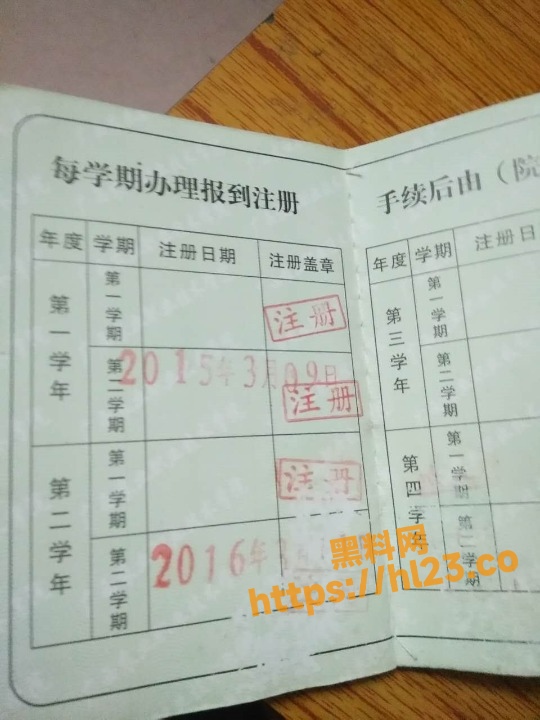 每学期办理报到注册
年度 学期 注册日期 注册盖章
第一学年 第一学期 注册
第二学期 2015年3月09日 注册
第二学年 第一学期 注册
第二学期 2016年3
手续后由（院
年度 学期 注册日
第三学年 第一学期
第二学期
第四学年 第一学期
第二学期
黑料网
https://hl23.co